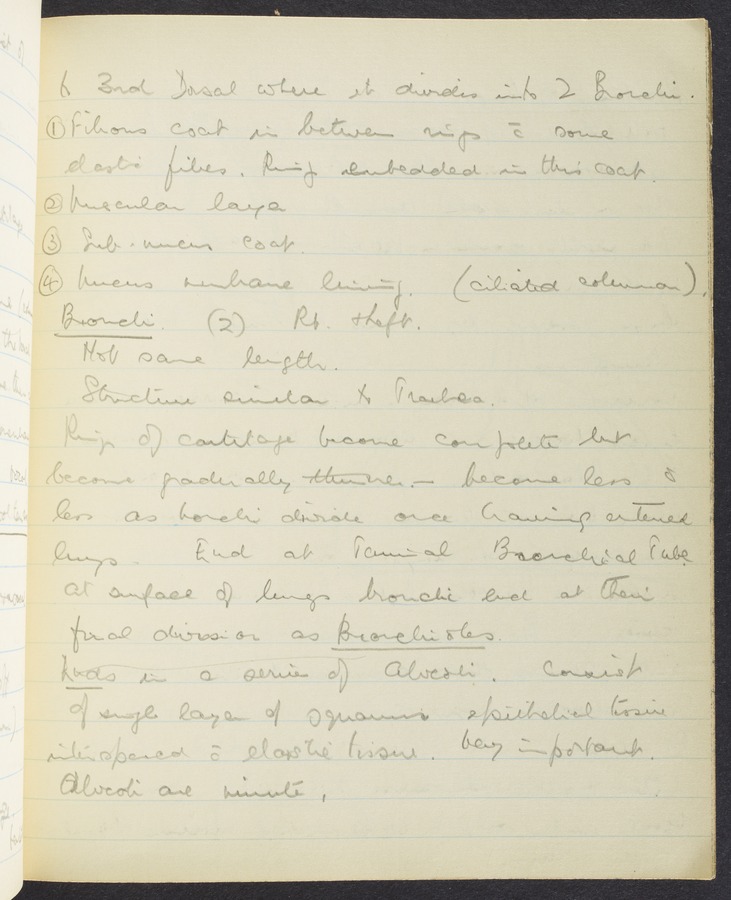 to 3rd Dorsal where it divides into 2 Bronchi.
① Fibrous coat in between rings c̄ some
elastic fibres. Ring embedded in this coat.
② Muscular layer
③ Sub-mucus coat.
④ Mucus membrane lining. (ciliated columnar).
Bronchi. (2) Rt. & left.
Not same length.
Structure similar to Trachea.
Rings of cartilage become complete but
become gradually thinner – become less &
less as bronchi divide once having entered
lungs. End at Terminal Bronchial Tube
at surface of lungs bronchi end at their
final division as Bronchioles.
Ends in a series of alveoli. Consist
of single layer of squamous epithelial tissue
interspaced c̄ elastic tissue. Very important.
Alveoli are minute,